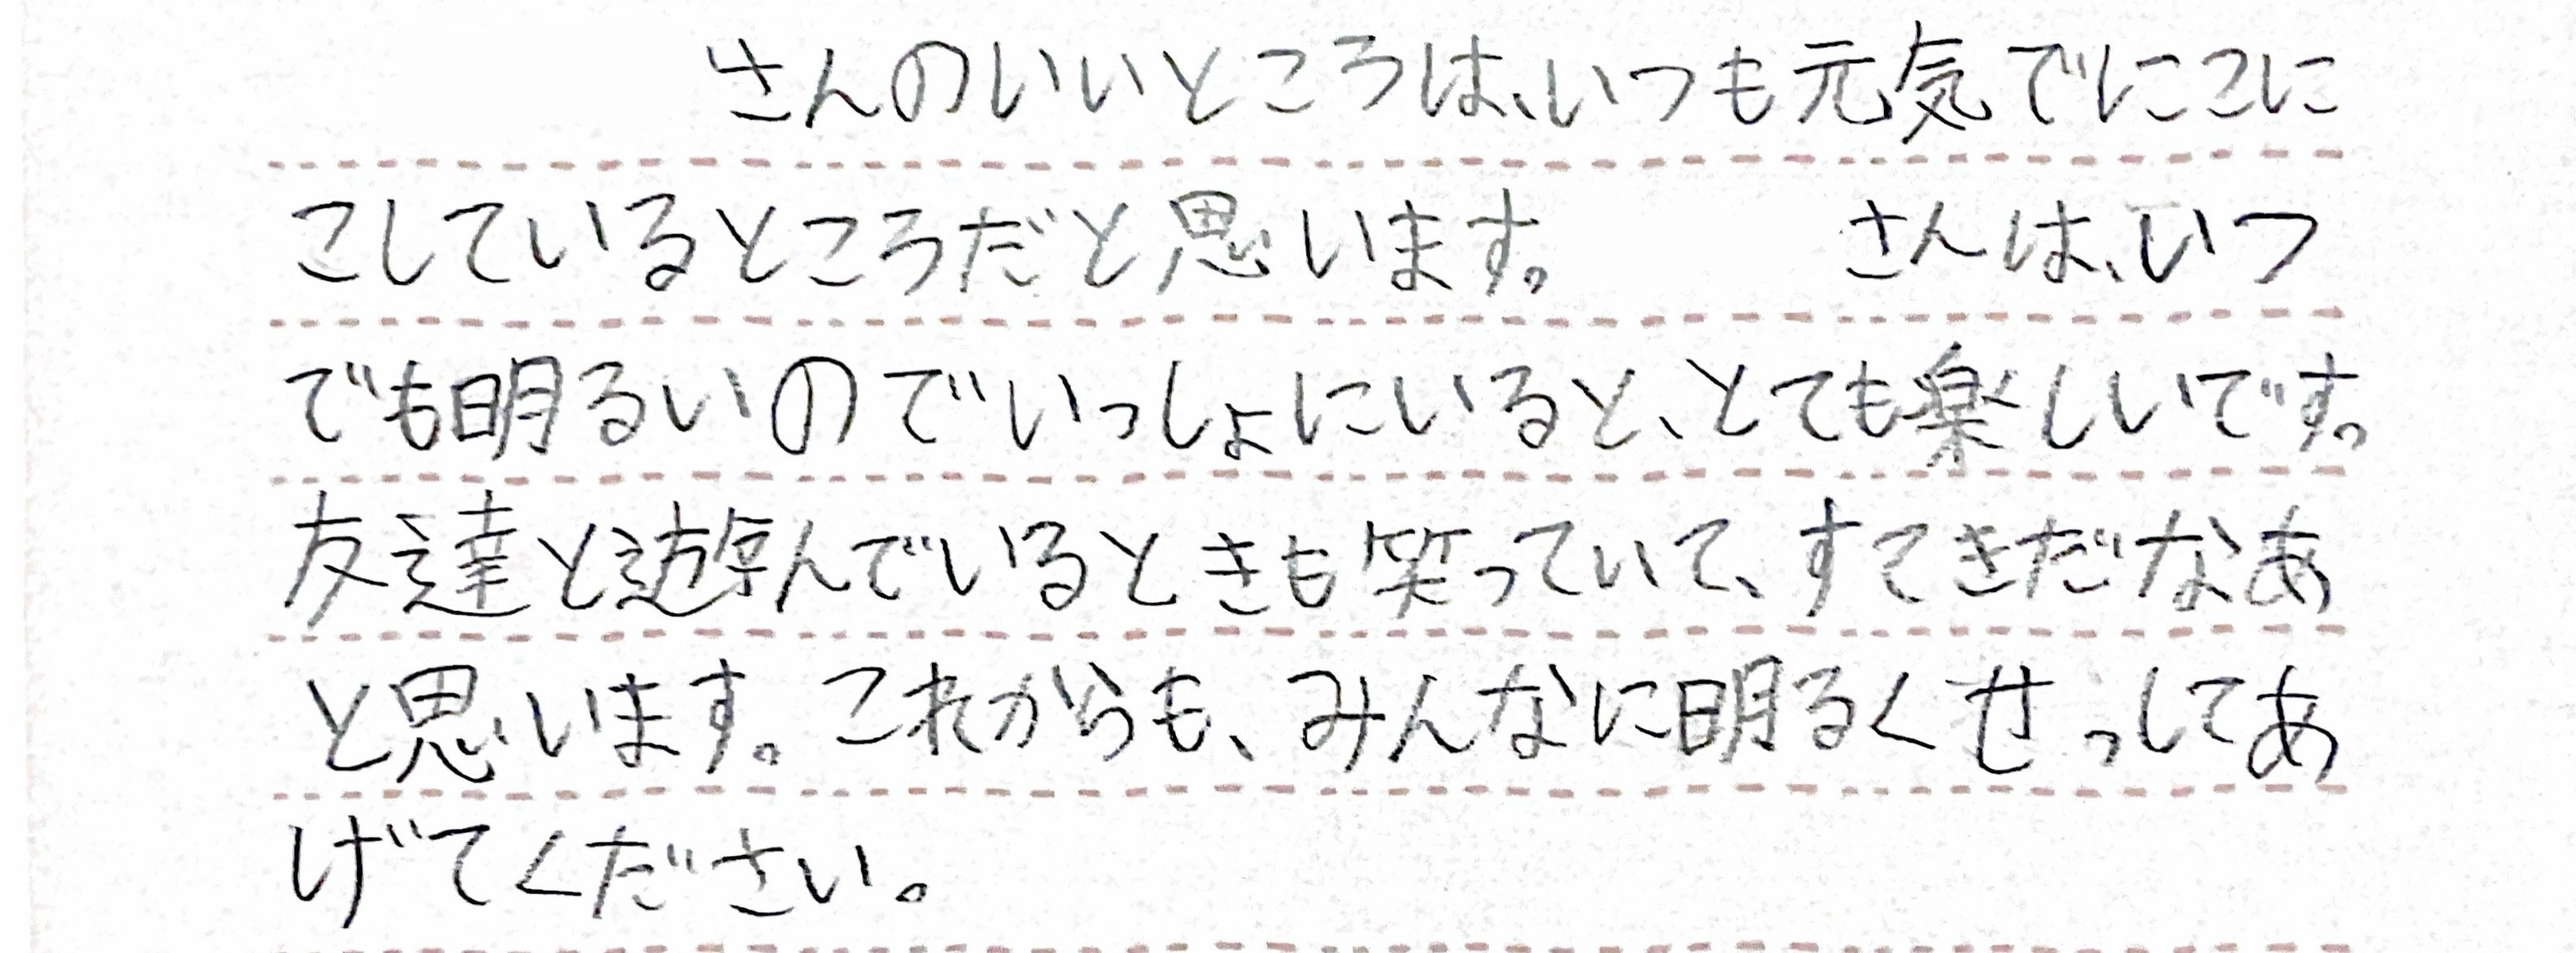 さんのいいところは、いつも元気でにこに
こしているところだと思います。 さんは、いつ
でも明るいのでいっしょにいると、とても楽しいです。
友達と遊んでいるときも笑っていて、すてきだなあ
と思います。これからも、みんなに明るくせっしてあ
げてください。